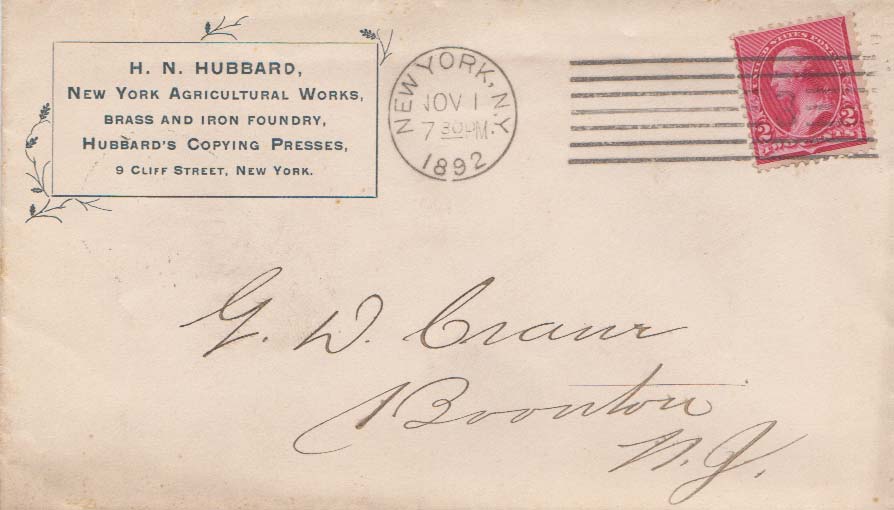 H. N. HUBBARD,
NEW YORK AGRICULTURAL WORKS,
BRASS AND IRON FOUNDRY,
HUBBARD'S COPYING PRESSES,
9 CLIFF STREET, NEW YORK.
NEW YORK, N.Y.
NOV 1
7 30PM
1892
UNITED STATES POSTAGE
2 2
G. W. Crane
Boonton
N. J.